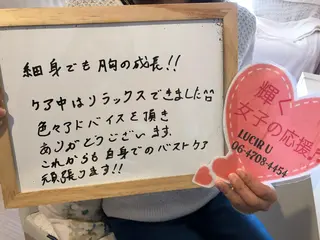 細身でも胸の成長!!
ケア中はリラックスできました
色々アドバイスを頂き
ありがとうございます。
これからも自身でのバストケア
頑張ります!!
輝く
女子の応援
LUCIR U
06-4708-4454